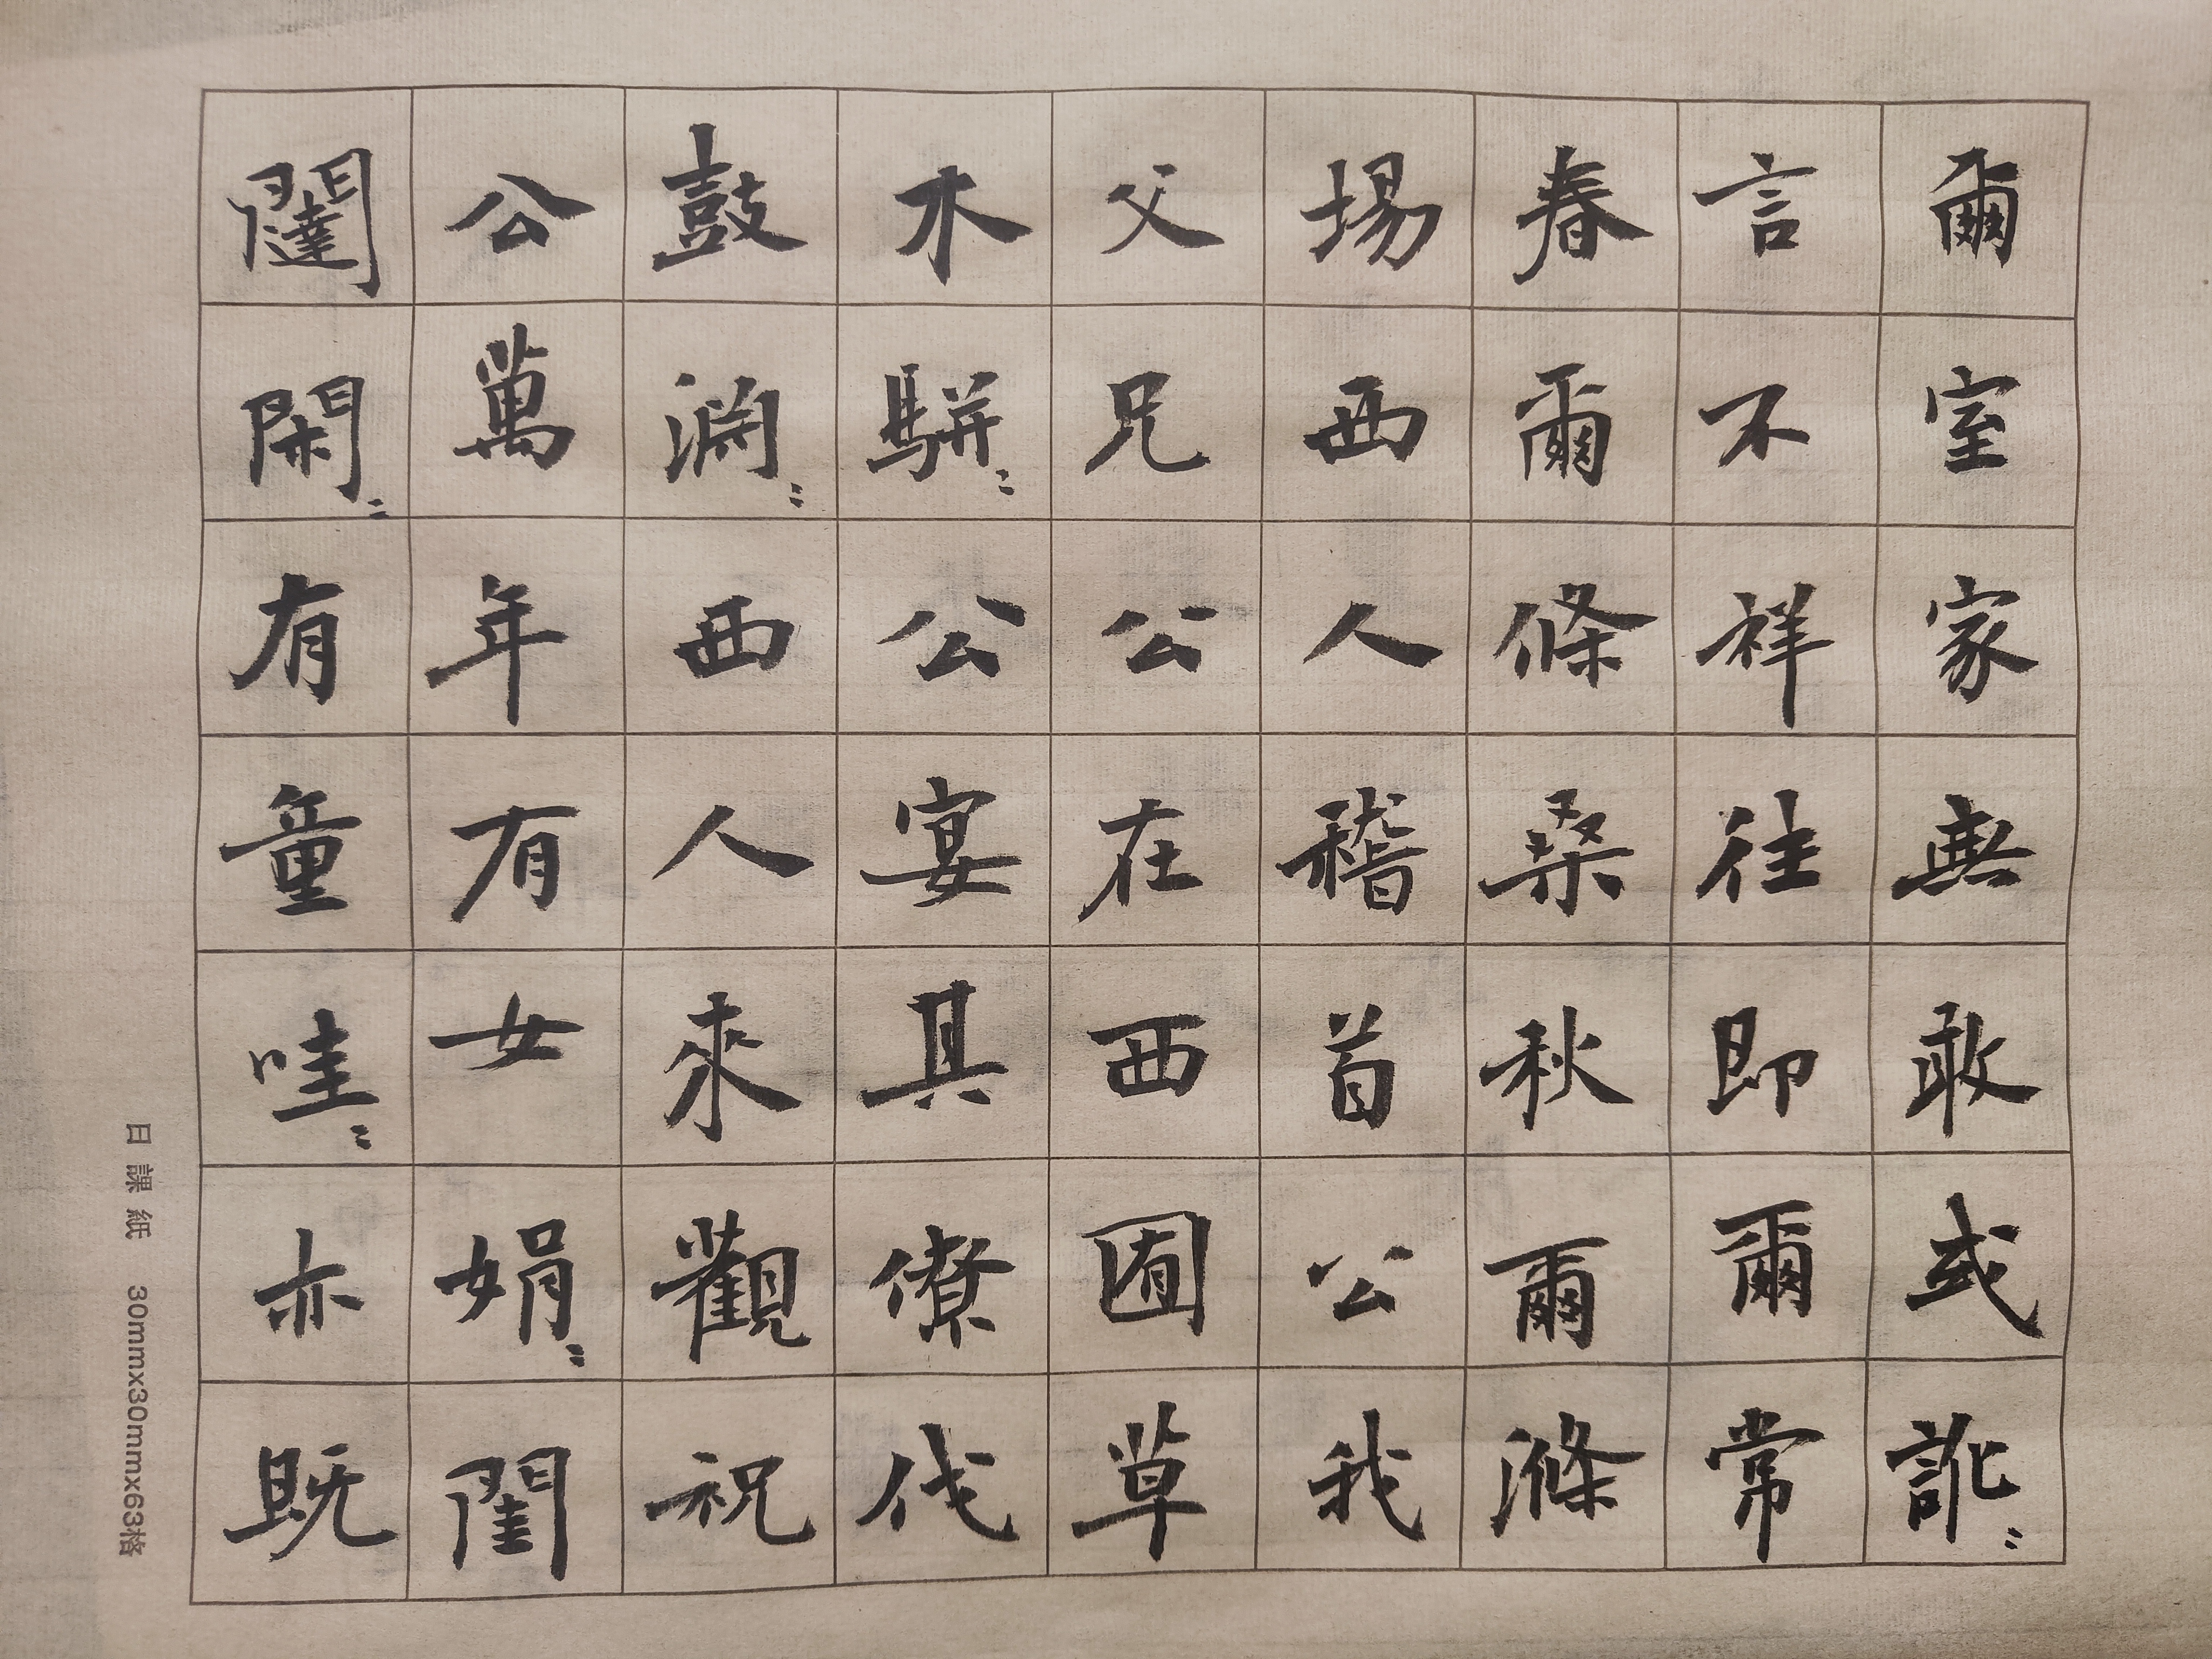 爾室家無敢或訛〻
言不祥往即爾常
春爾條桑秋爾滌
場西人稽首公我
父兄公在西囿草
木駢〻公宴其僚伐
鼓淵〻西人來觀祝
公萬年有女娟〻閨
闥閑〻有童哇〻亦既
日課紙 30mmx30mmx63格